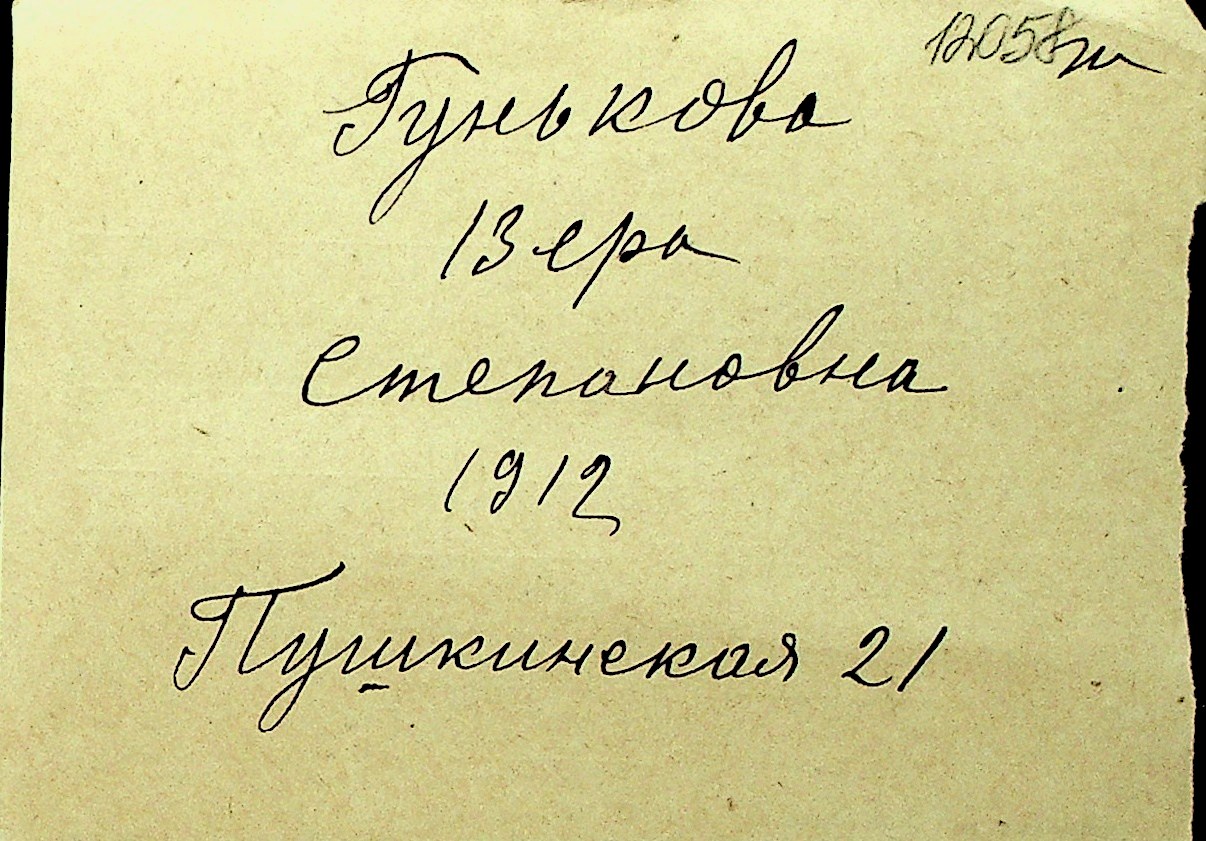 12058п
Гунькова
Вера
Степановна
1912
Пушкинская 21